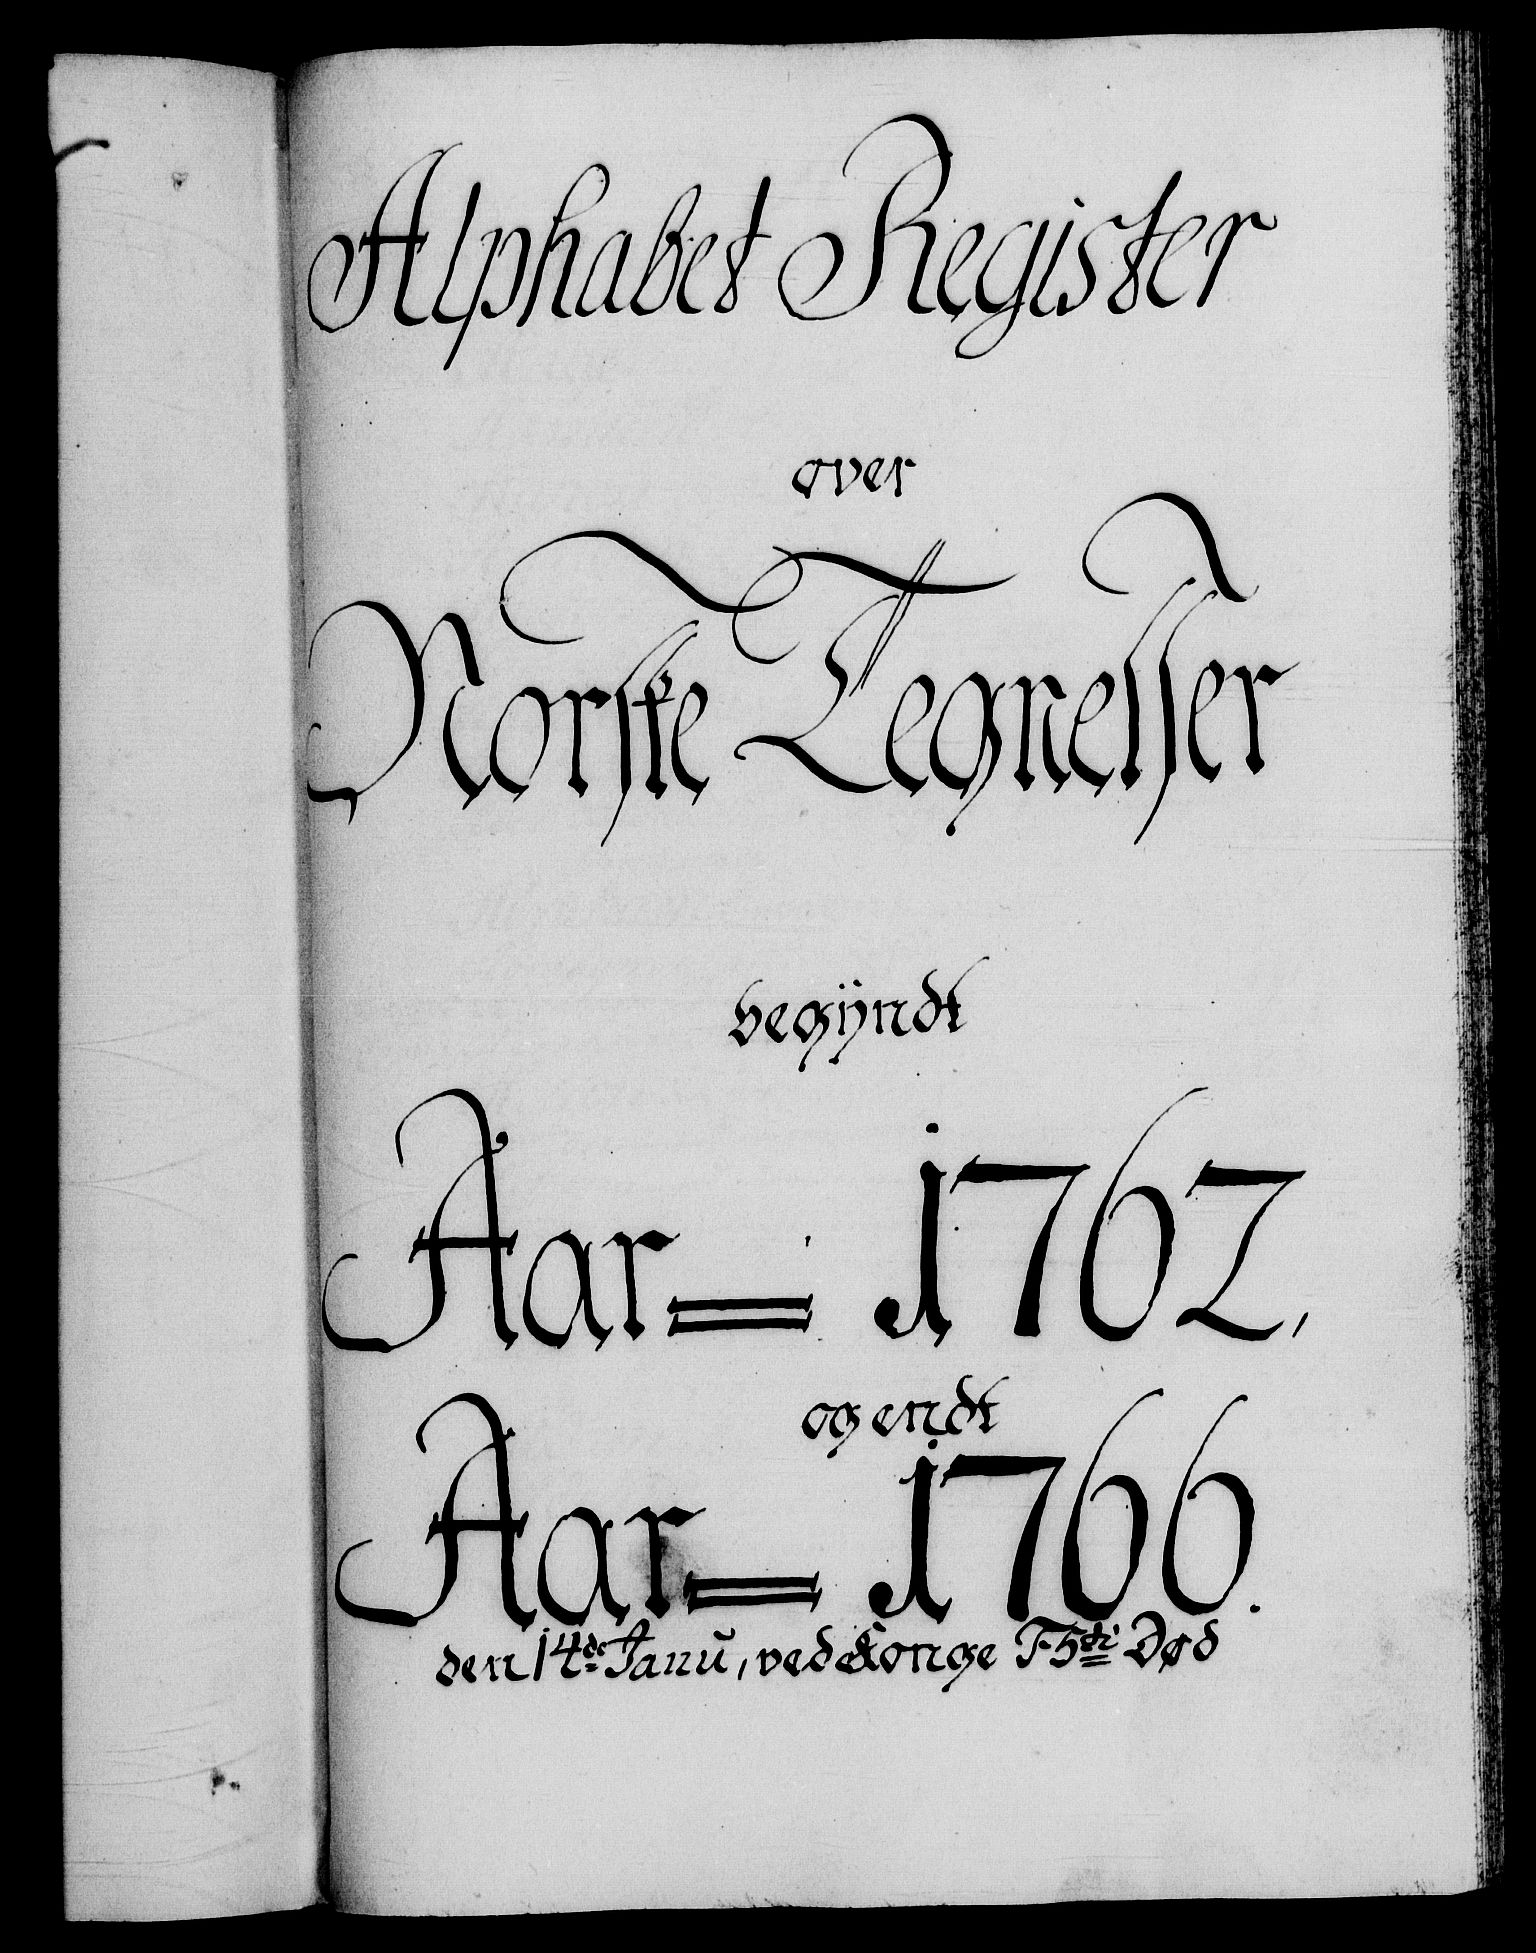 Alphabet Register
over
Norske Tegnelser
begÿndt
Aar= 1762,
og endt
Aar= 1766.
den 14de Janu, ved Konge F. 5tis Død